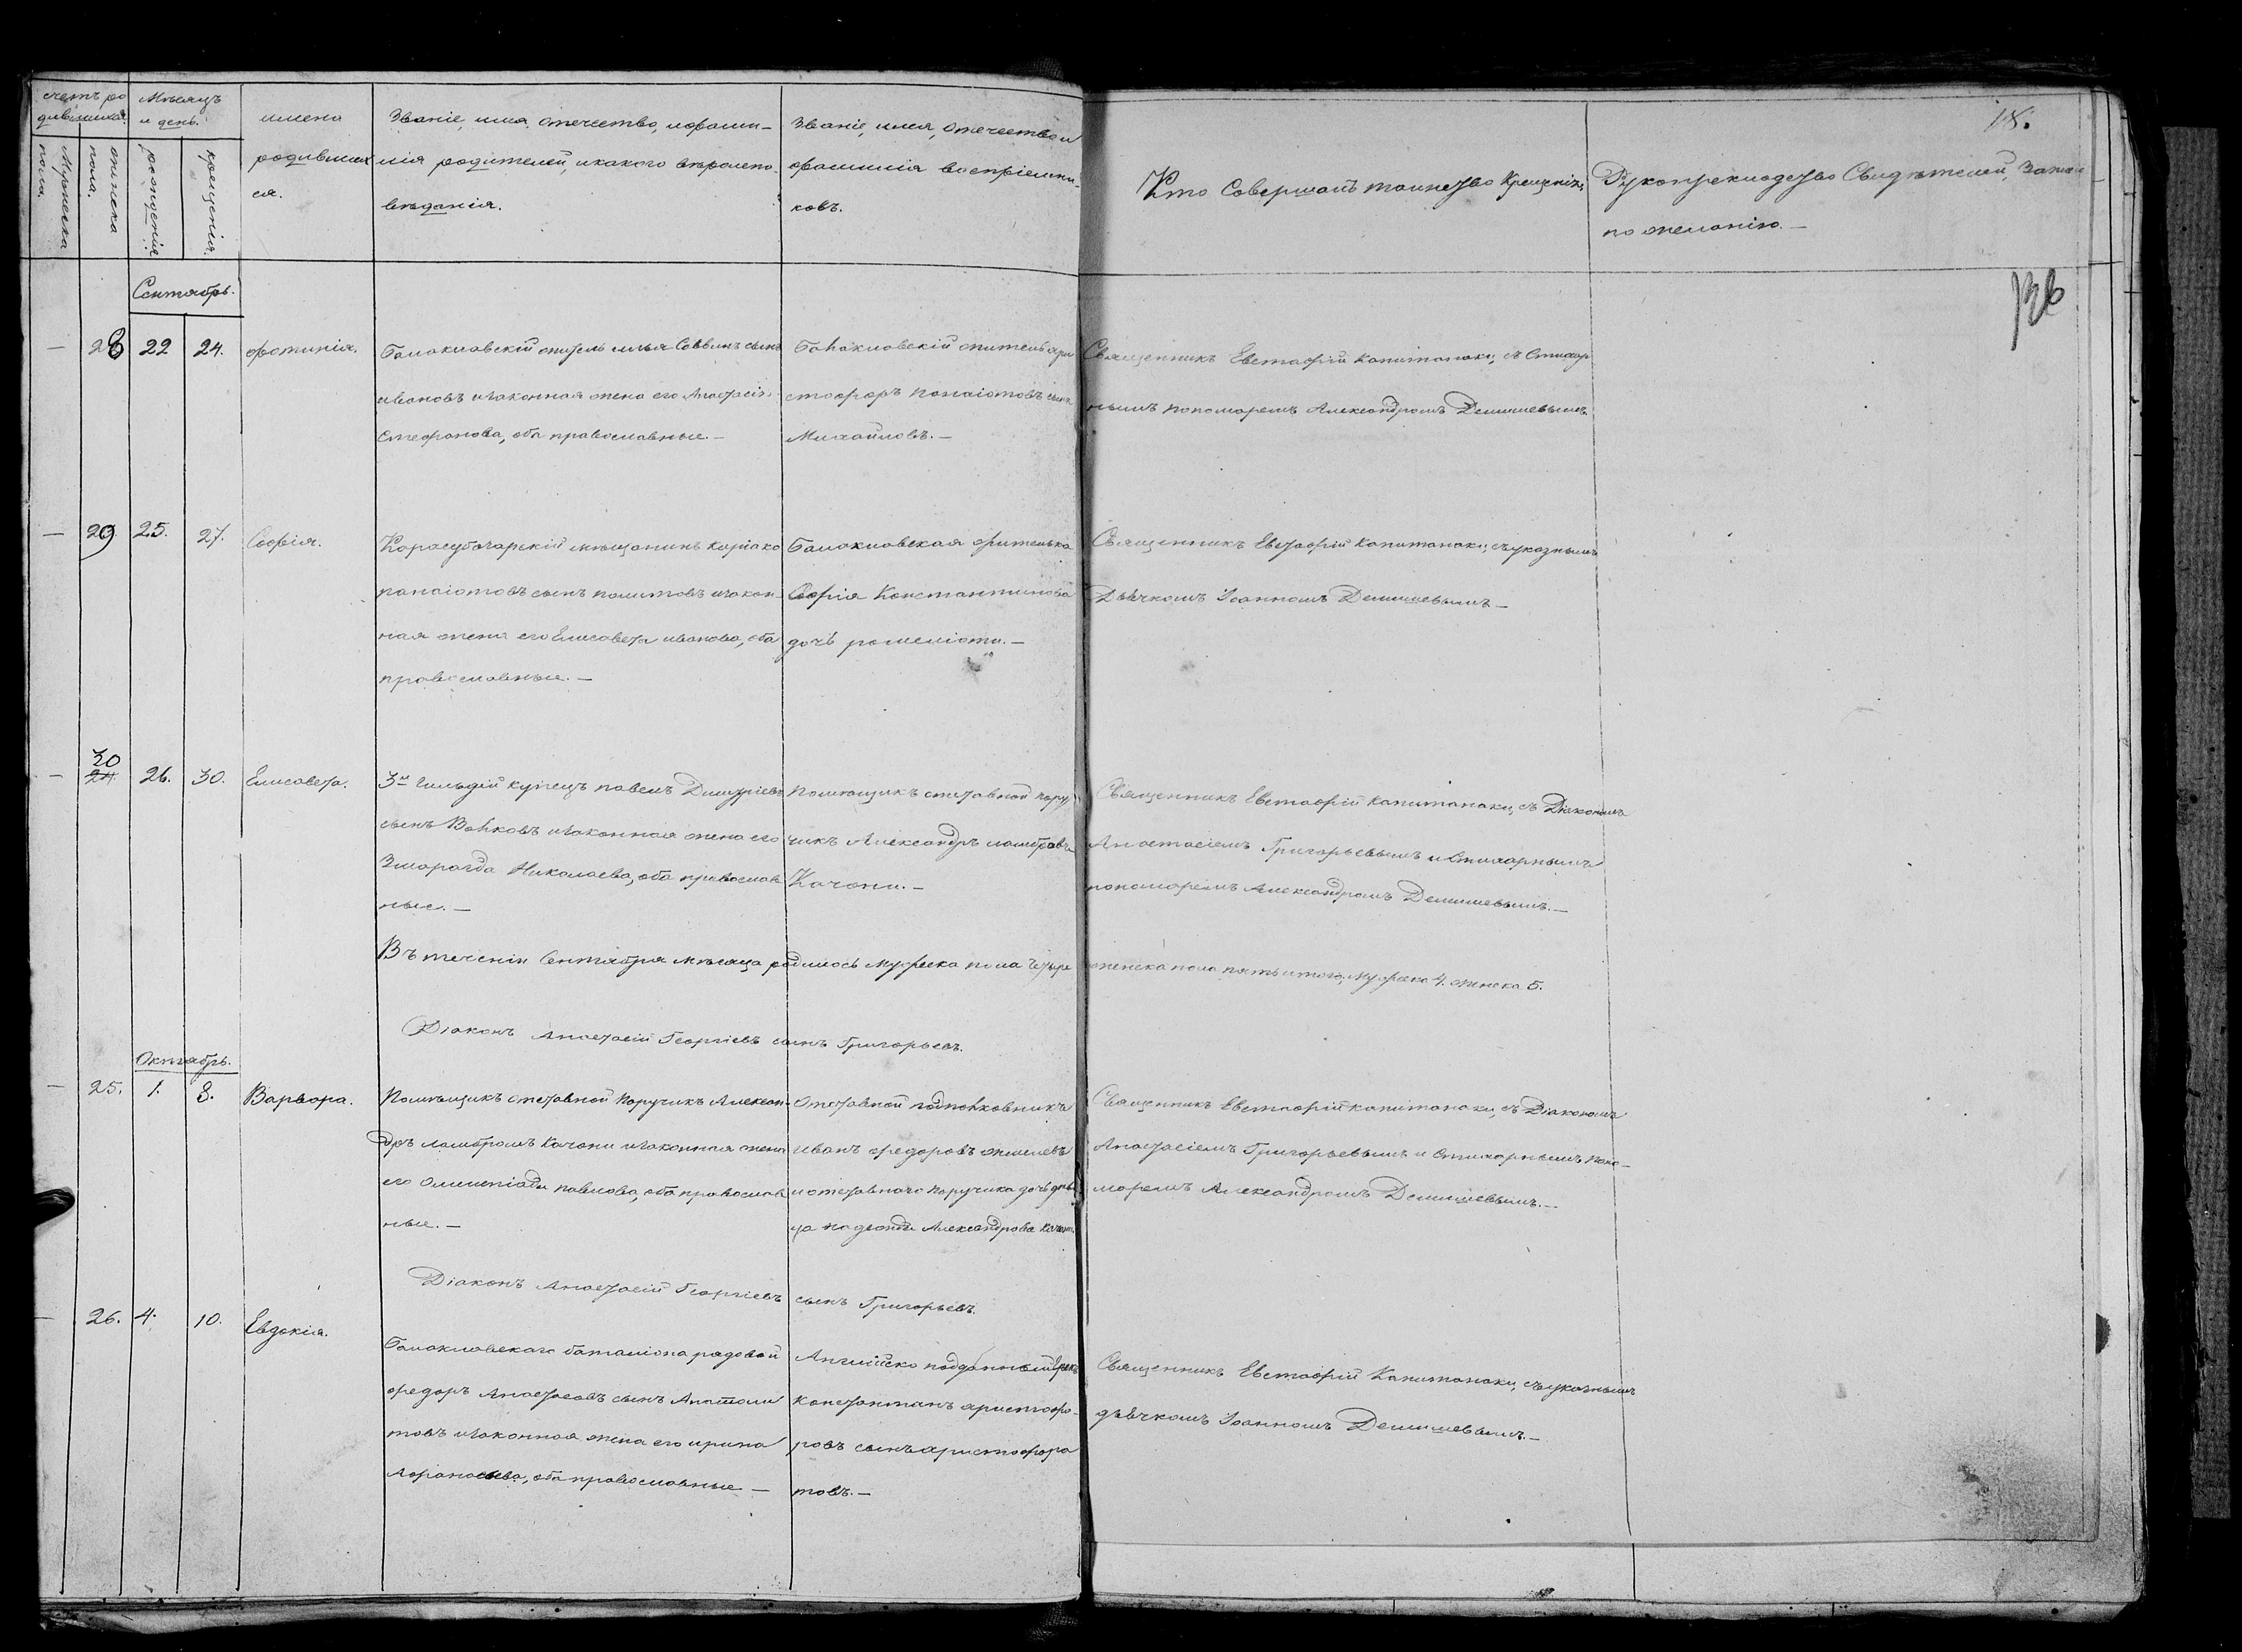 счетъ ро
дившихся.
Мужеска
пола.
женска
пола.
Мѣсяцъ
и день.
рожденія
крещенія.
имена
родивших
ся.
Званіе, имя, отечество, и фами-
лія родителей, и какого вѣроиспо-
вѣданія.
Званіе, имя, отечество и
фамилія воспріемни-
ковъ.
Кто Совершалъ таинство Крещенія.
Рукоприкладство Свидѣтелей, записи
по желанію.
18.
Сентябрь.
— 28 22 24. фотинія.
Балаклавскій житель Илья Саввинъ сынъ
Ивановъ и законная жена его Анафасія
Стефанова, оба православные. —
Балаклавскій житель хри
стофоръ Панаіотовъ сынъ
Михайловъ. —
Священникъ Евстафій Капитанаки, съ Стихар
нымъ пономаремъ Александромъ Демишевымъ.
— 29 25. 27. Софія.
Карасубазарскій мѣщанинъ Киріако
панаіотовъ сынъ политовъ и закон-
ная жена его Елисавета иванова, оба
православные. —
Балаклавская жителька
Софія Константинова
дочь
Священникъ Евстафій Капитанаки, съ указнымъ
Дьячкомъ Іоанномъ Демишевымъ —
— 30
24 26. 30. Елисавета.
3й гильдій купецъ павелъ Димитріевъ
сынъ Волковъ и законная жена его
Змарагда Николаева, оба православ
ные. —
Помѣщикъ отставной пору
чикъ Александръ ламбровъ
Качони. —
Священникъ Евстафій Капитанаки, съ Діакономъ
Анастасіемъ Григорьевымъ и Стихарнымъ
пономаремъ Александромъ Демишевымъ. —
Въ теченіи Сентября мѣсяца родилось мужеска пола четыре женска пола пять итого, мужеска 4. женска 5.
Діаконъ Анастасій Георгіевъ сынъ Григорьевъ.
Октябрь.
— 25. 1. 8. Варвара.
Помѣщикъ отставной Поручикъ Алексан-
дръ ламбромъ Качони и законная жена
его Олимпіада павлова, оба православ
ные. —
Отставной подполковникъ
Иванъ федоровъ
и отставнаго поручика дочь дѣви
ца надежда Александрова Качони
Священникъ Евстафій капитанаки, съ Діакономъ
Анастасіемъ Григорьевымъ и Стихарнымъ поно-
маремъ Александромъ Демишевымъ. —
Діаконъ Анастасій Георгіевъ сынъ Григорьевъ.
— 26. 4. 10. Евдокія.
Балаклавскаго баталіона рядовой
федоръ Анастасовъ сынъ
товъ и законная жена его ирина
Афанасьева, оба православные —
Англійско подданный грекъ
Константинъ христофо-
ровъ сынъ христофора
товъ. —
Священникъ Евстафій Капитанаки, съ указнымъ
дьячкомъ Іоанномъ Демишевымъ. —